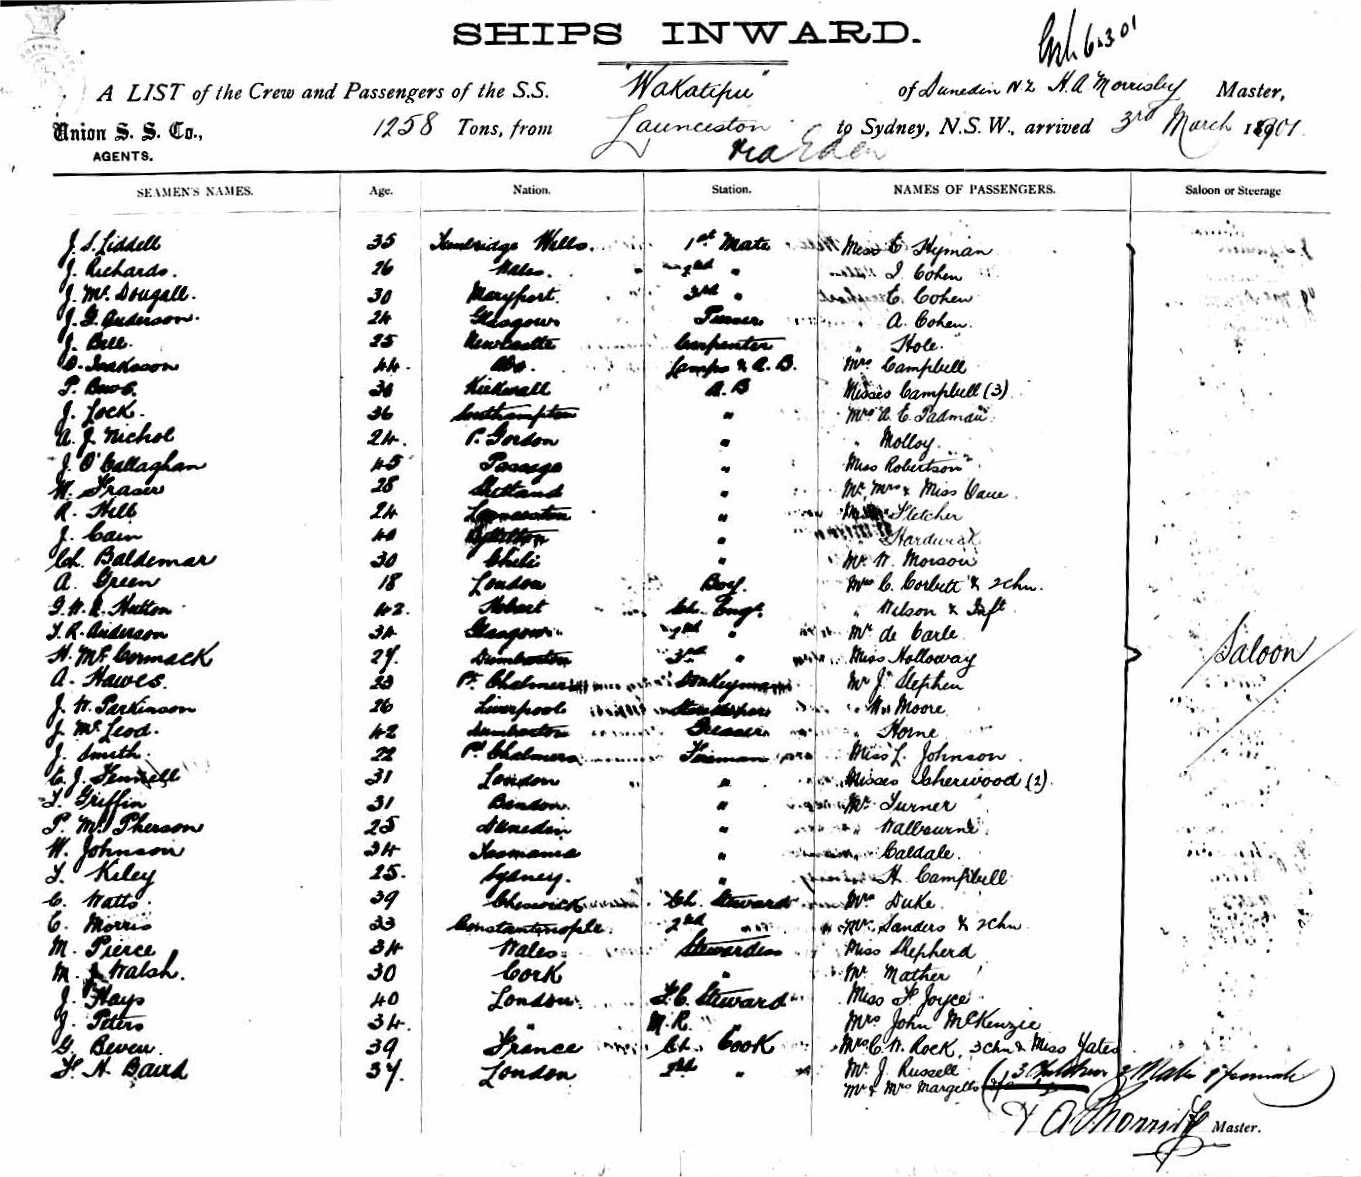 SHIPS INWARD.
6.3.01
A LIST of the Crew and Passengers of the S.S. "Wakatipu" of Dunedin NZ H. A Morrisby Master,
Union S. S. Co., 1258 Tons, from Launceston to Sydney, N.S.W., arrived 3rd March 1901
AGENTS. via Eden
SEAMEN'S NAMES. Age. Nation. Station. NAMES OF PASSENGERS. Saloon or Steerage
J. S. Liddell 35 Tunbridge Wells. 1st Mate Miss E Hyman
J. Richards. 26 Wales. 2nd " " I Cohen
J. Mc Dougall. 30 Maryport. 3rd " " E. Cohen
J. G. Anderson. 24 Glasgow " A. Cohen
J. Bell. 25 Newcastle Carpenter " Hole
Isaksson 44. Abo. Lamps & A.B. Mrs Campbell
P. Kirkwall A.B Misses Campbell (3)
J. Lock. 36 Southampton " Mrs A. E. Padman
A. J. Nichol 24. P. Gordon " " Molloy
J. O'Callaghan 45 Passage " Miss Robertson
W. Fraser 28 Shetland " Mr Mrs & Miss
R. Hill 24 Launceston " Fletcher
J. Cain 40 Lyttelton " Hardwick
Ch. Baldemar 30 Chili " Mr W. Morson
A. Green 18 London Boy. Mrs C. Corbett & 2 chn.
G. W. R. Hutton 42. Hobart Ch. Engr. " Wilson & Inft
T. R. Anderson 34 Glasgow 2nd " Mr de Carle
H. Mc Cormack 27. Dumbarton 3rd " Miss Holloway Saloon
A. Hawes. 23 Pt. Chalmers Donkeyman Mr J. Stephen
J. W. Parkinson 26 Liverpool Storekeeper " Moore
J. Mc Leod. 42 Dumbarton Greaser " Horne
J. Smith. 22 Pt Chalmers Fireman Miss L. Johnson
E. J. Fennell 31 London " Misses Isherwood (2)
T. Griffin 31 Bandon " Mr Turner
P. Mc Pherson 25 Dunedin " " Walbourne
W. Johnson 34 Tasmania " " Caldale.
T. Kiley 25. Sydney. " " H. Campbell
C. Watts. 39 Chiswick Ch. Steward Mrs Duke
E. Morris 33 Constantinople. 2nd " Sanders & 2 chn
M. Pierce 34 Wales. Stewardess Miss Shepherd
M. J Walsh. 30 Cork " Mr Mather
J. Hays 40 London F.C. Steward Miss F Joyce
J. Peters 34. " M.R. " Mrs John McKenzie
G. Beven. 39 France Ch. Cook Mrs C. W. Rock, 3 chn & Miss Yates
F. H. Baird 37. London 2nd " Mr J. Russell
Mr & Mrs Margetts (3 Children 2 Male 1 female)
H A Morrisby Master.